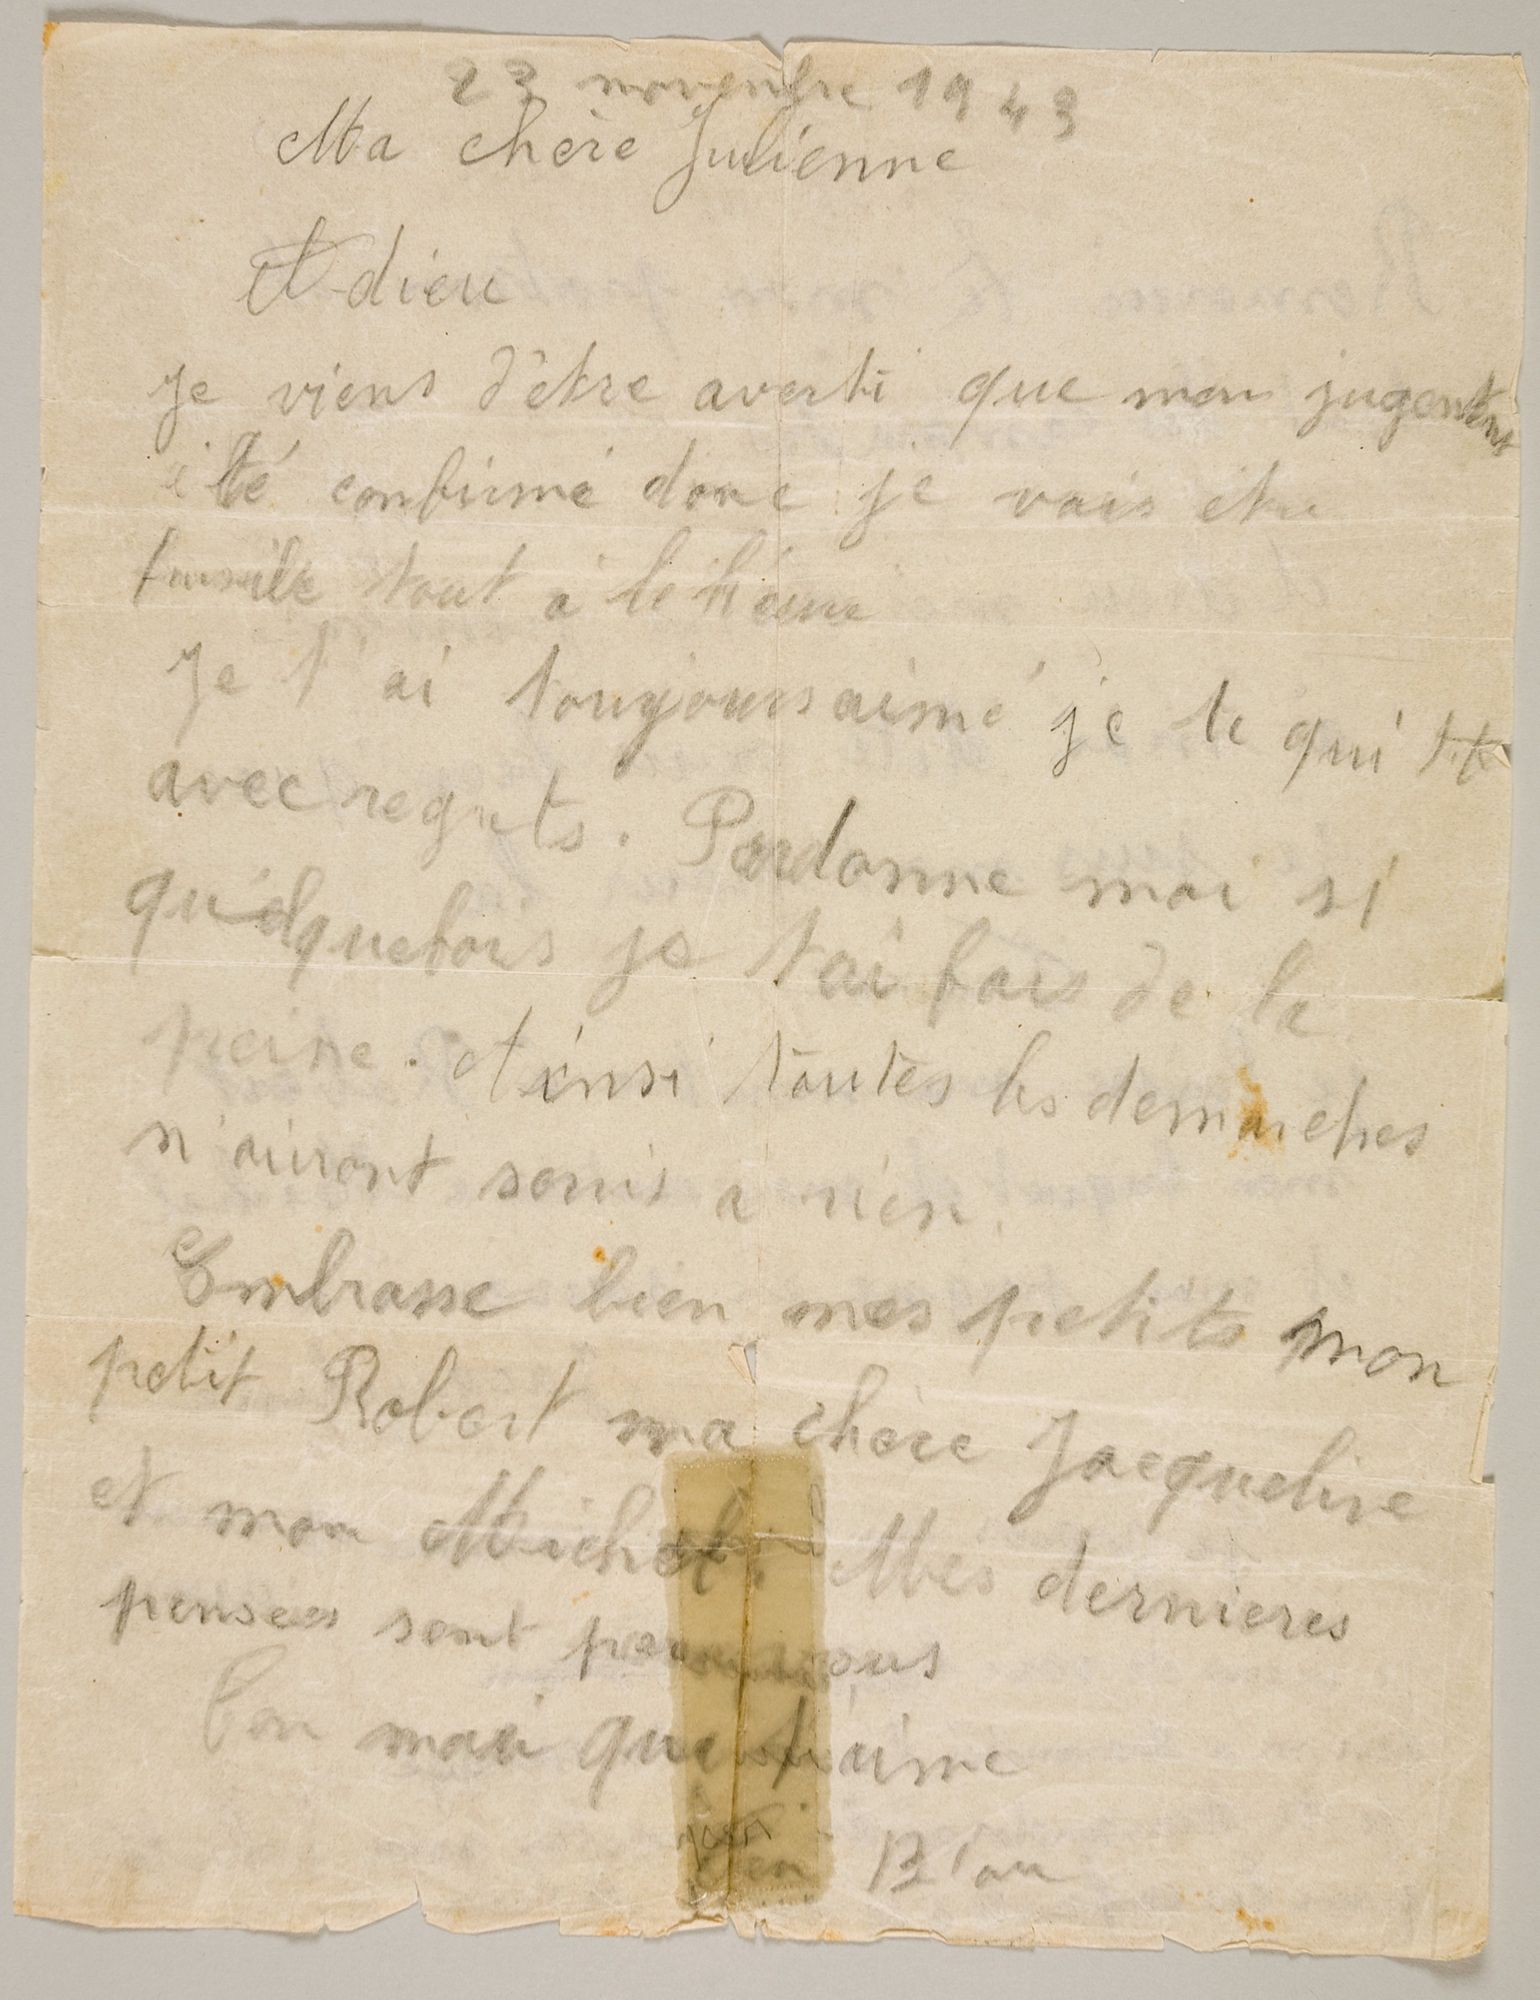 23 novembre 1943
Ma chère Julienne
Adieu
Je viens d'être averti que mon jugement
été confirmé donc je vais être
fusillé tout à le heure
Je t'ai toujours aimé je te quitte
avec regrets. Pardonne moi si
quelquefois je t'ai fais de la
peine. Ainsi toutes les demarches
n'auront servis a rien.
Embrasse bien mes petits mon
petit Robert ma chère Jacqueline
et mon Michel. Mes dernieres
pensées sont pour vous
Ton mari que t'aime